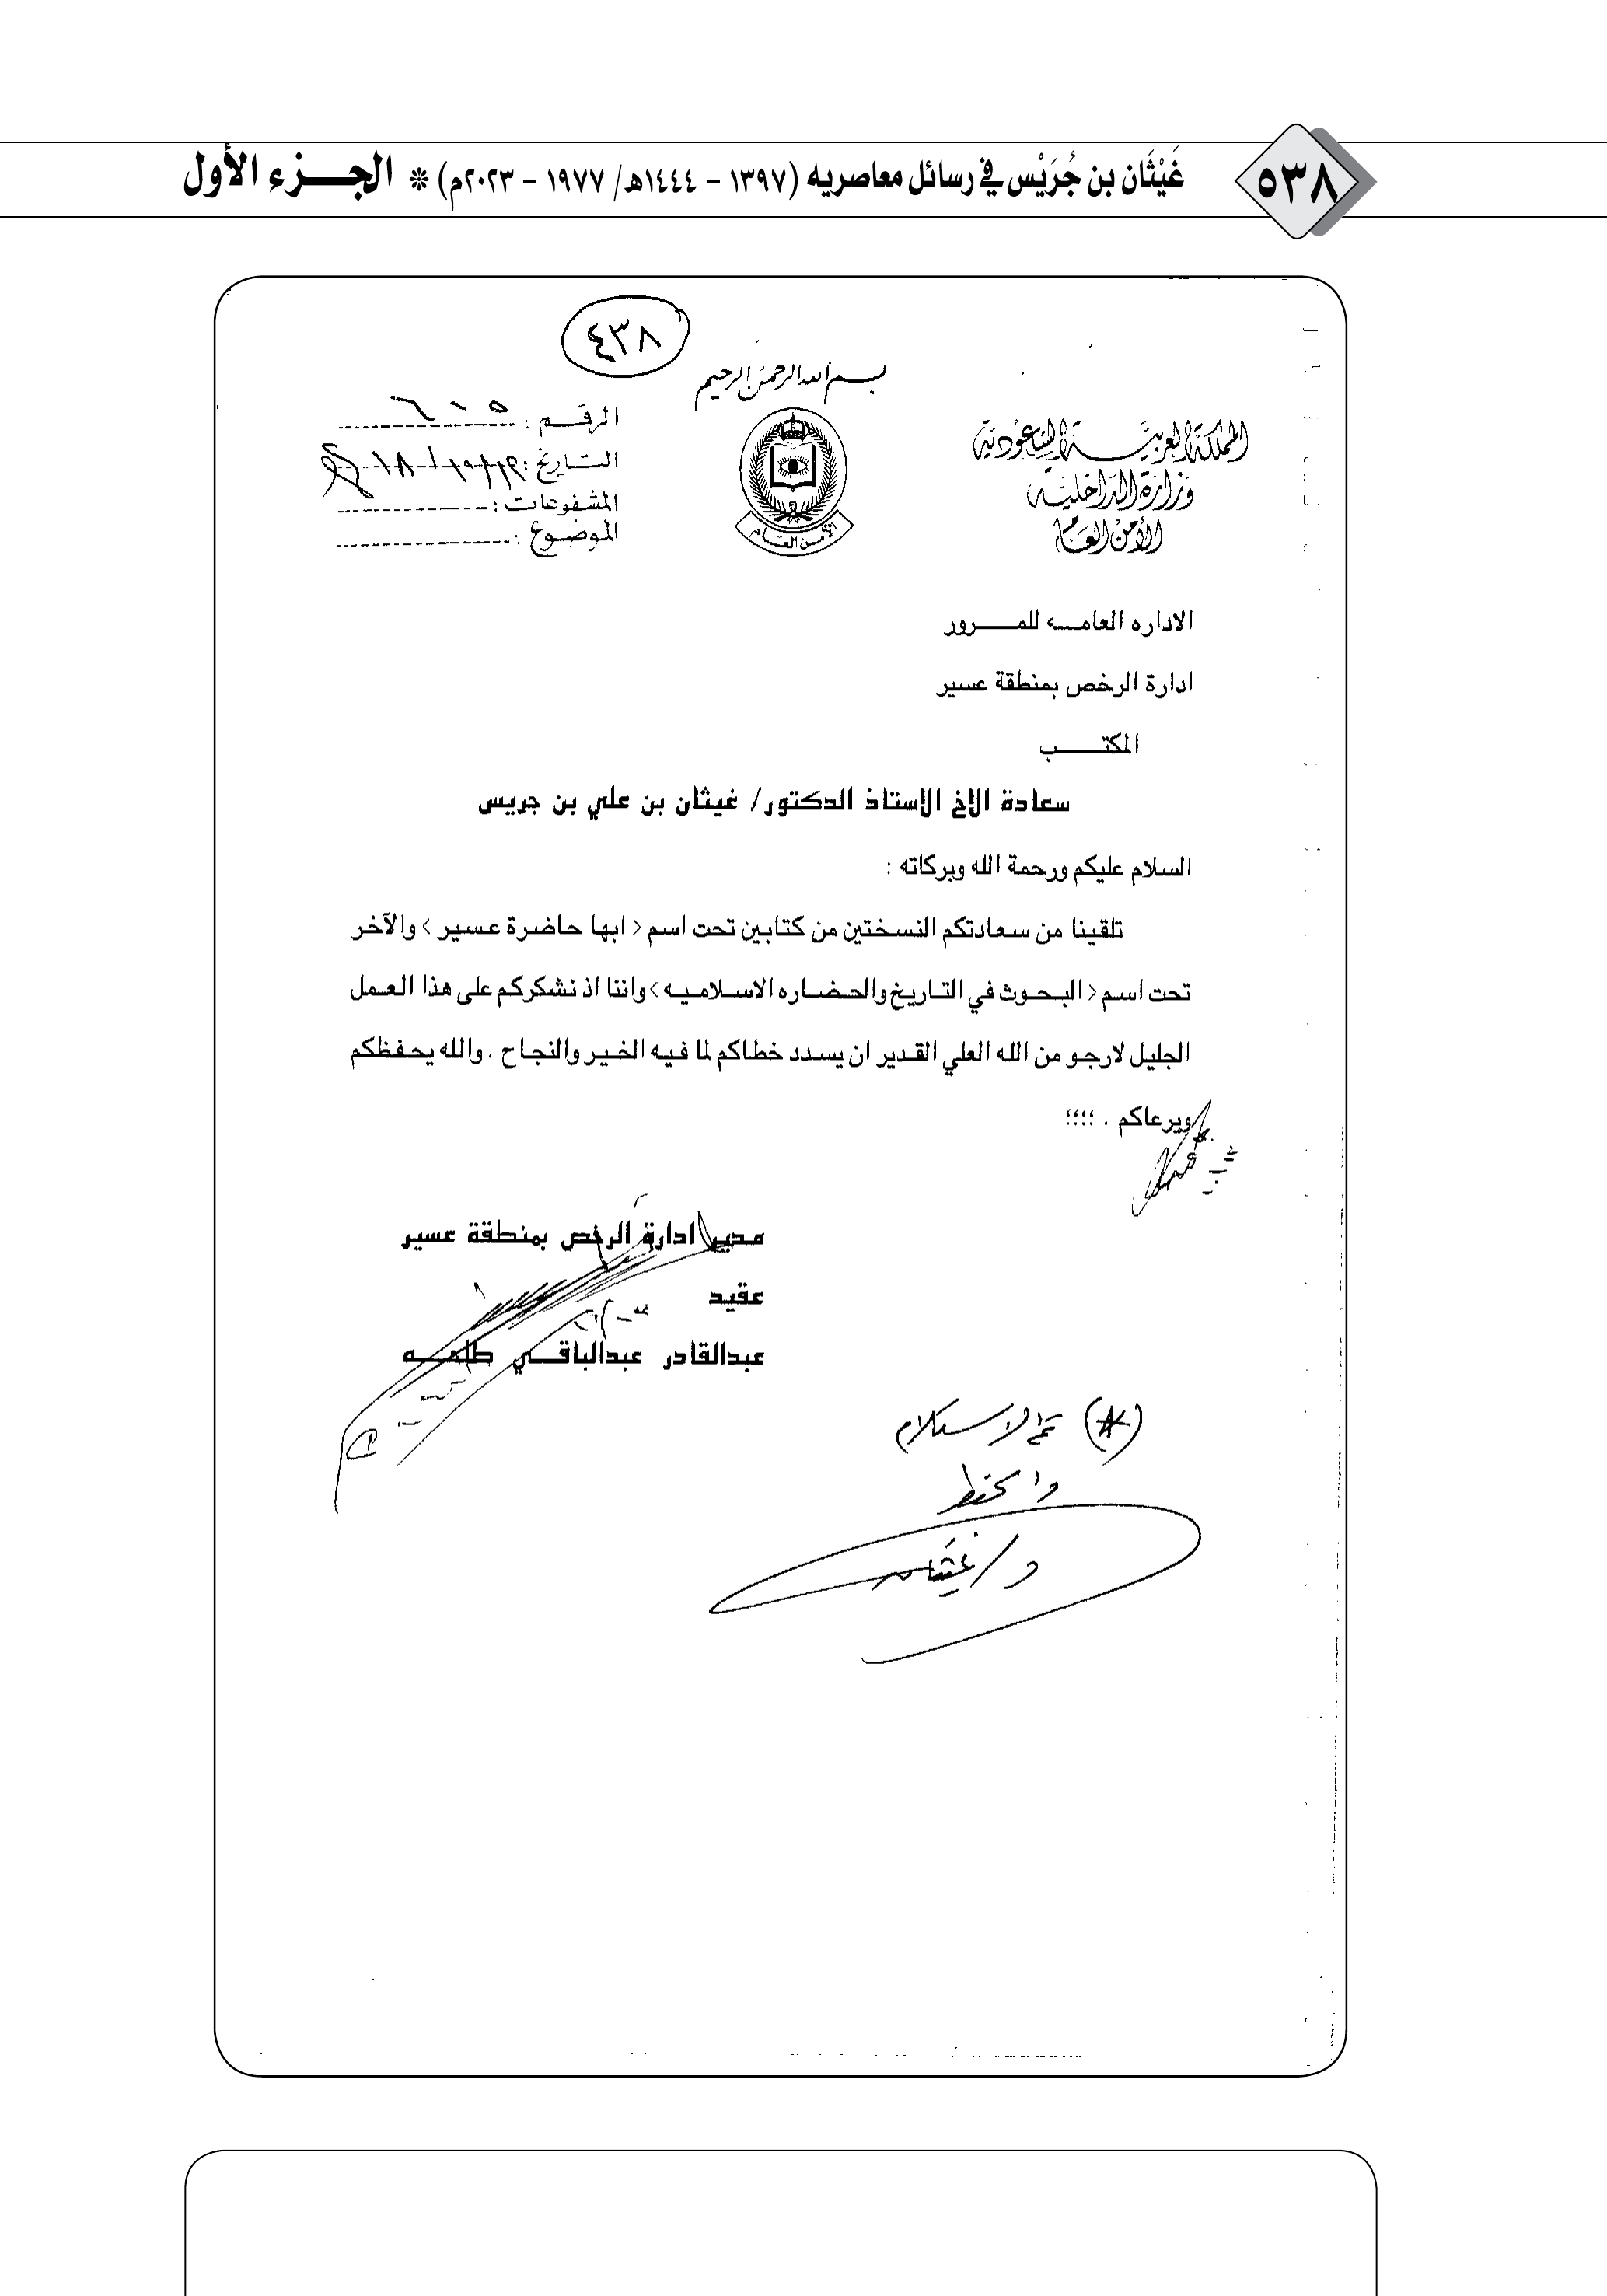 ٥٣٨
غَيْثَان بن جُرَيْس في رسائل معاصريه (١٣٩٧ - ١٤٤٤هـ/ ١٩٧٧ - ٢٠٢٣م) * الجـــزء الأول
٤٣٨
بسم الله الرحمن الرحيم
المملكة العربية السعودية
وزارة الداخلية
الأمن العام
الأمن العام
الرقم :
التاريخ :
المشفوعات :
الموضوع :
الاداره العامه للمــرور
ادارة الرخص بمنطقة عسير
المكتــب
سعادة الاخ الاستاذ الدكتور/ غيثان بن علي بن جريس
السلام عليكم ورحمة الله وبركاته :
تلقينا من سعادتكم النسختين من كتابين تحت اسم < ابها حاضرة عسير > والآخر
تحت اسم < البحوث في التاريخ والحضاره الاسلاميه > واننا اذ نشكركم على هذا العمل
الجليل لارجو من الله العلي القدير ان يسدد خطاكم لما فيه الخير والنجاح . والله يحفظكم
ويرعاكم . ؛؛؛؛
مدير ادارة الرخص بمنطقة عسير
عقيد
عبدالقادر عبدالباقي طلحه
(*) تم الاستلام
والحفظ
د/ غيثان